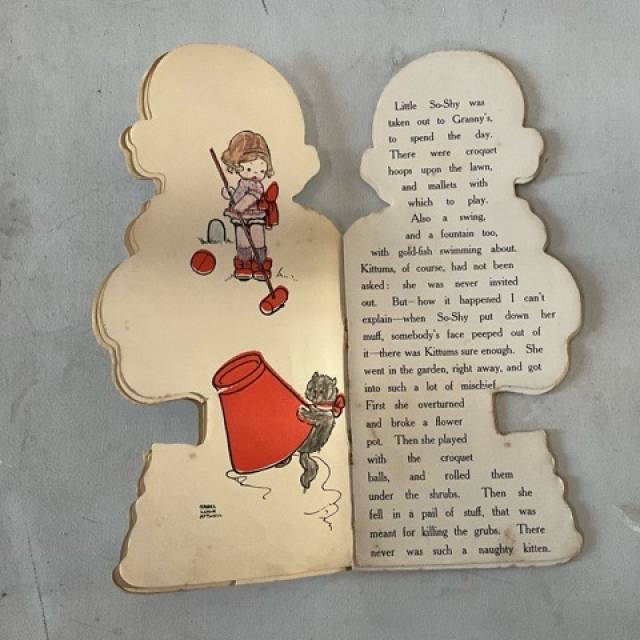 MABEL
LUCIE
ATTWELL
Little So-Shy was
taken out to Granny's,
to spend the day.
There were croquet
hoops upon the lawn,
and mallets with
which to play.
Also a swing,
and a fountain too,
with gold-fish swimming about.
Kittums, of course, had not been
asked: she was never invited
out. But—how it happened I can't
explain—when So-Shy put down her
muff, somebody's face peeped out of
it—there was Kittums sure enough. She
went in the garden, right away, and got
into such a lot of mischief.
First she overturned
and broke a flower
pot. Then she played
with the croquet
balls, and rolled them
under the shrubs. Then she
fell in a pail of stuff, that was
meant for killing the grubs. There
never was such a naughty kitten.